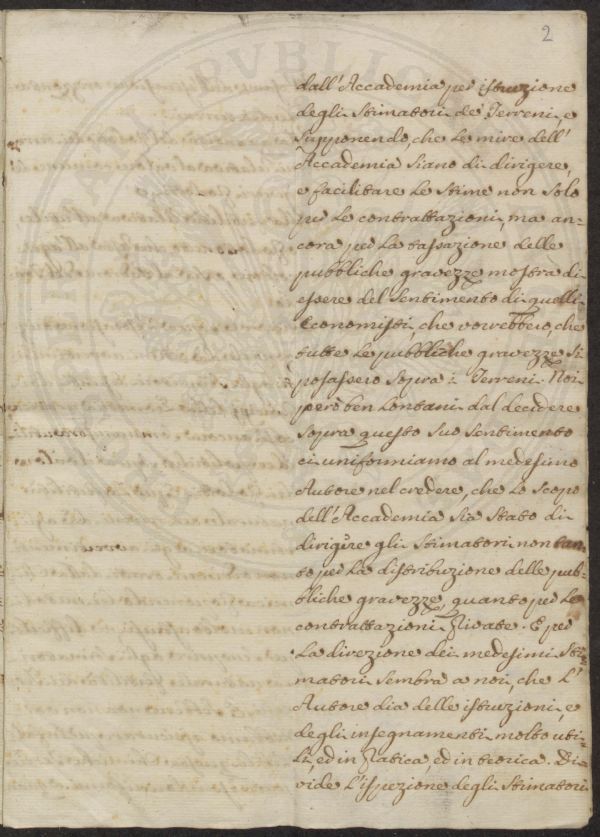 2
dall'Accademia per istruzione
degli Stimatori de' Terreni, e
supponendo, che le mire dell'
Accademia siano di dirigere,
e facilitare le stime non solo
per le contrattazioni, ma an=
cora per la tassazione delle
pubbliche gravezze mostra di
essere del sentimento di quelli
Economisti, che vorrebbero, che
tutte le pubbliche gravezze si
posassero sopra i Terreni. Noi
però ben lontani dal decidere
sopra questo suo sentimento
ci uniformiamo al medesimo
Autore nel credere, che lo scopo
dell'Accademia sia stato di
dirigere gli Stimatori non tan=
to per la distribuzione delle pub=
bliche gravezze, quanto per le
contrattazioni private. E per
la direzione dei medesimi Sti=
matori sembra a noi, che l'
Autore dia delle istruzioni, e
degli insegnamenti molto uti=
li, ed in pratica, ed in teorica. Di=
vide l'ispezione degli Stimatori